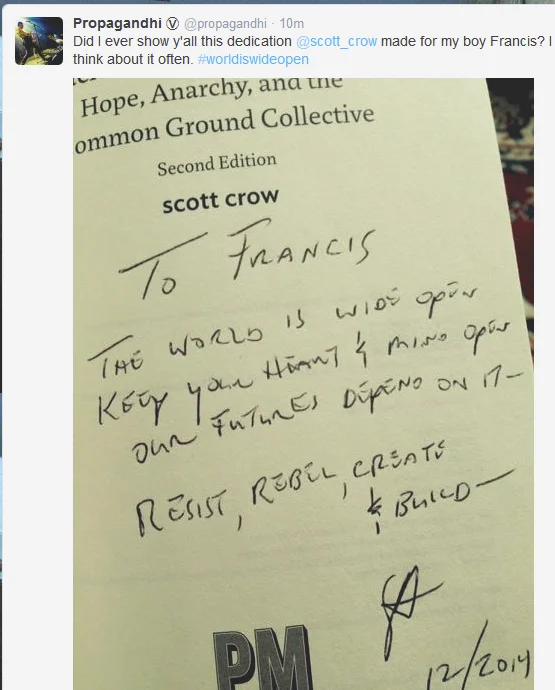 Propagandhi @propagandhi · 10m
Did I ever show y'all this dedication @scott_crow made for my boy Francis? I
think about it often. #worldiswideopen
Hope, Anarchy, and the
ommon Ground Collective
Second Edition
scott crow
To FRANCIS
THE WORLD IS WIDE OPEN
KEEP YOUR HEART & MIND OPEN
OUR FUTURES DEPEND ON IT-
RESIST, REBEL, CREATE
& BUILD-
PM
12/2014